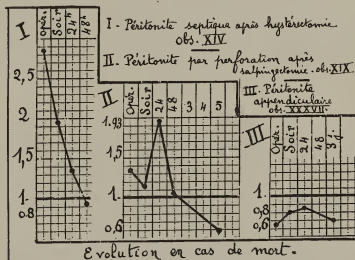 I - Péritonite septique après hystérectomie
obs. XIV
II - Péritonite par perforation après
salpingectomie. obs. XIX
III - Péritonite
appendiculaire
obs. XXXVII
I
Opér.
Soir
24h
48h
2,5
2
1,5
1
0.8
II
Opér.
Soir
24
48
3
4
5
1.93
1,5
1
0,6
III
Opér.
Soir
24
48
3 j.
1
0,8
0,6
Evolution en cas de mort.